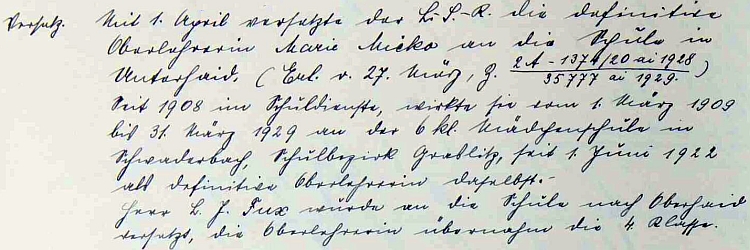 Versetz. Mit 1. April versetzte der L.-S.-R. die definitive
Oberlehrerin Marie Micko an die Schule in
Unterhaid. (Erl. v. 27. März, Z. 2A - 1374/20 ai 1928
35777 ai 1929.)
Seit 1908 im Schuldienste, wirkte sie vom 1. März 1909
bis 31. März 1929 an der 6 kl. Mädchenschule in
Schwaderbach, Schulbezirk Graslitz, seit 1. Juni 1922
als definitive Oberlehrerin daselbst.-
Herr L. J. Fux wurde an die Schule nach Oberhaid
versetzt, die Oberlehrerin übernahm die 4. Klasse.